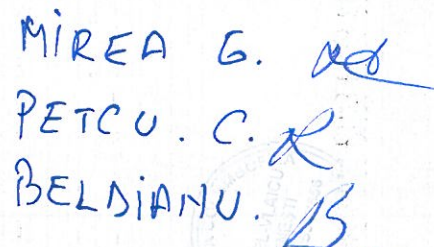 MIREA G.
PETCU. C.
BELDIANU.